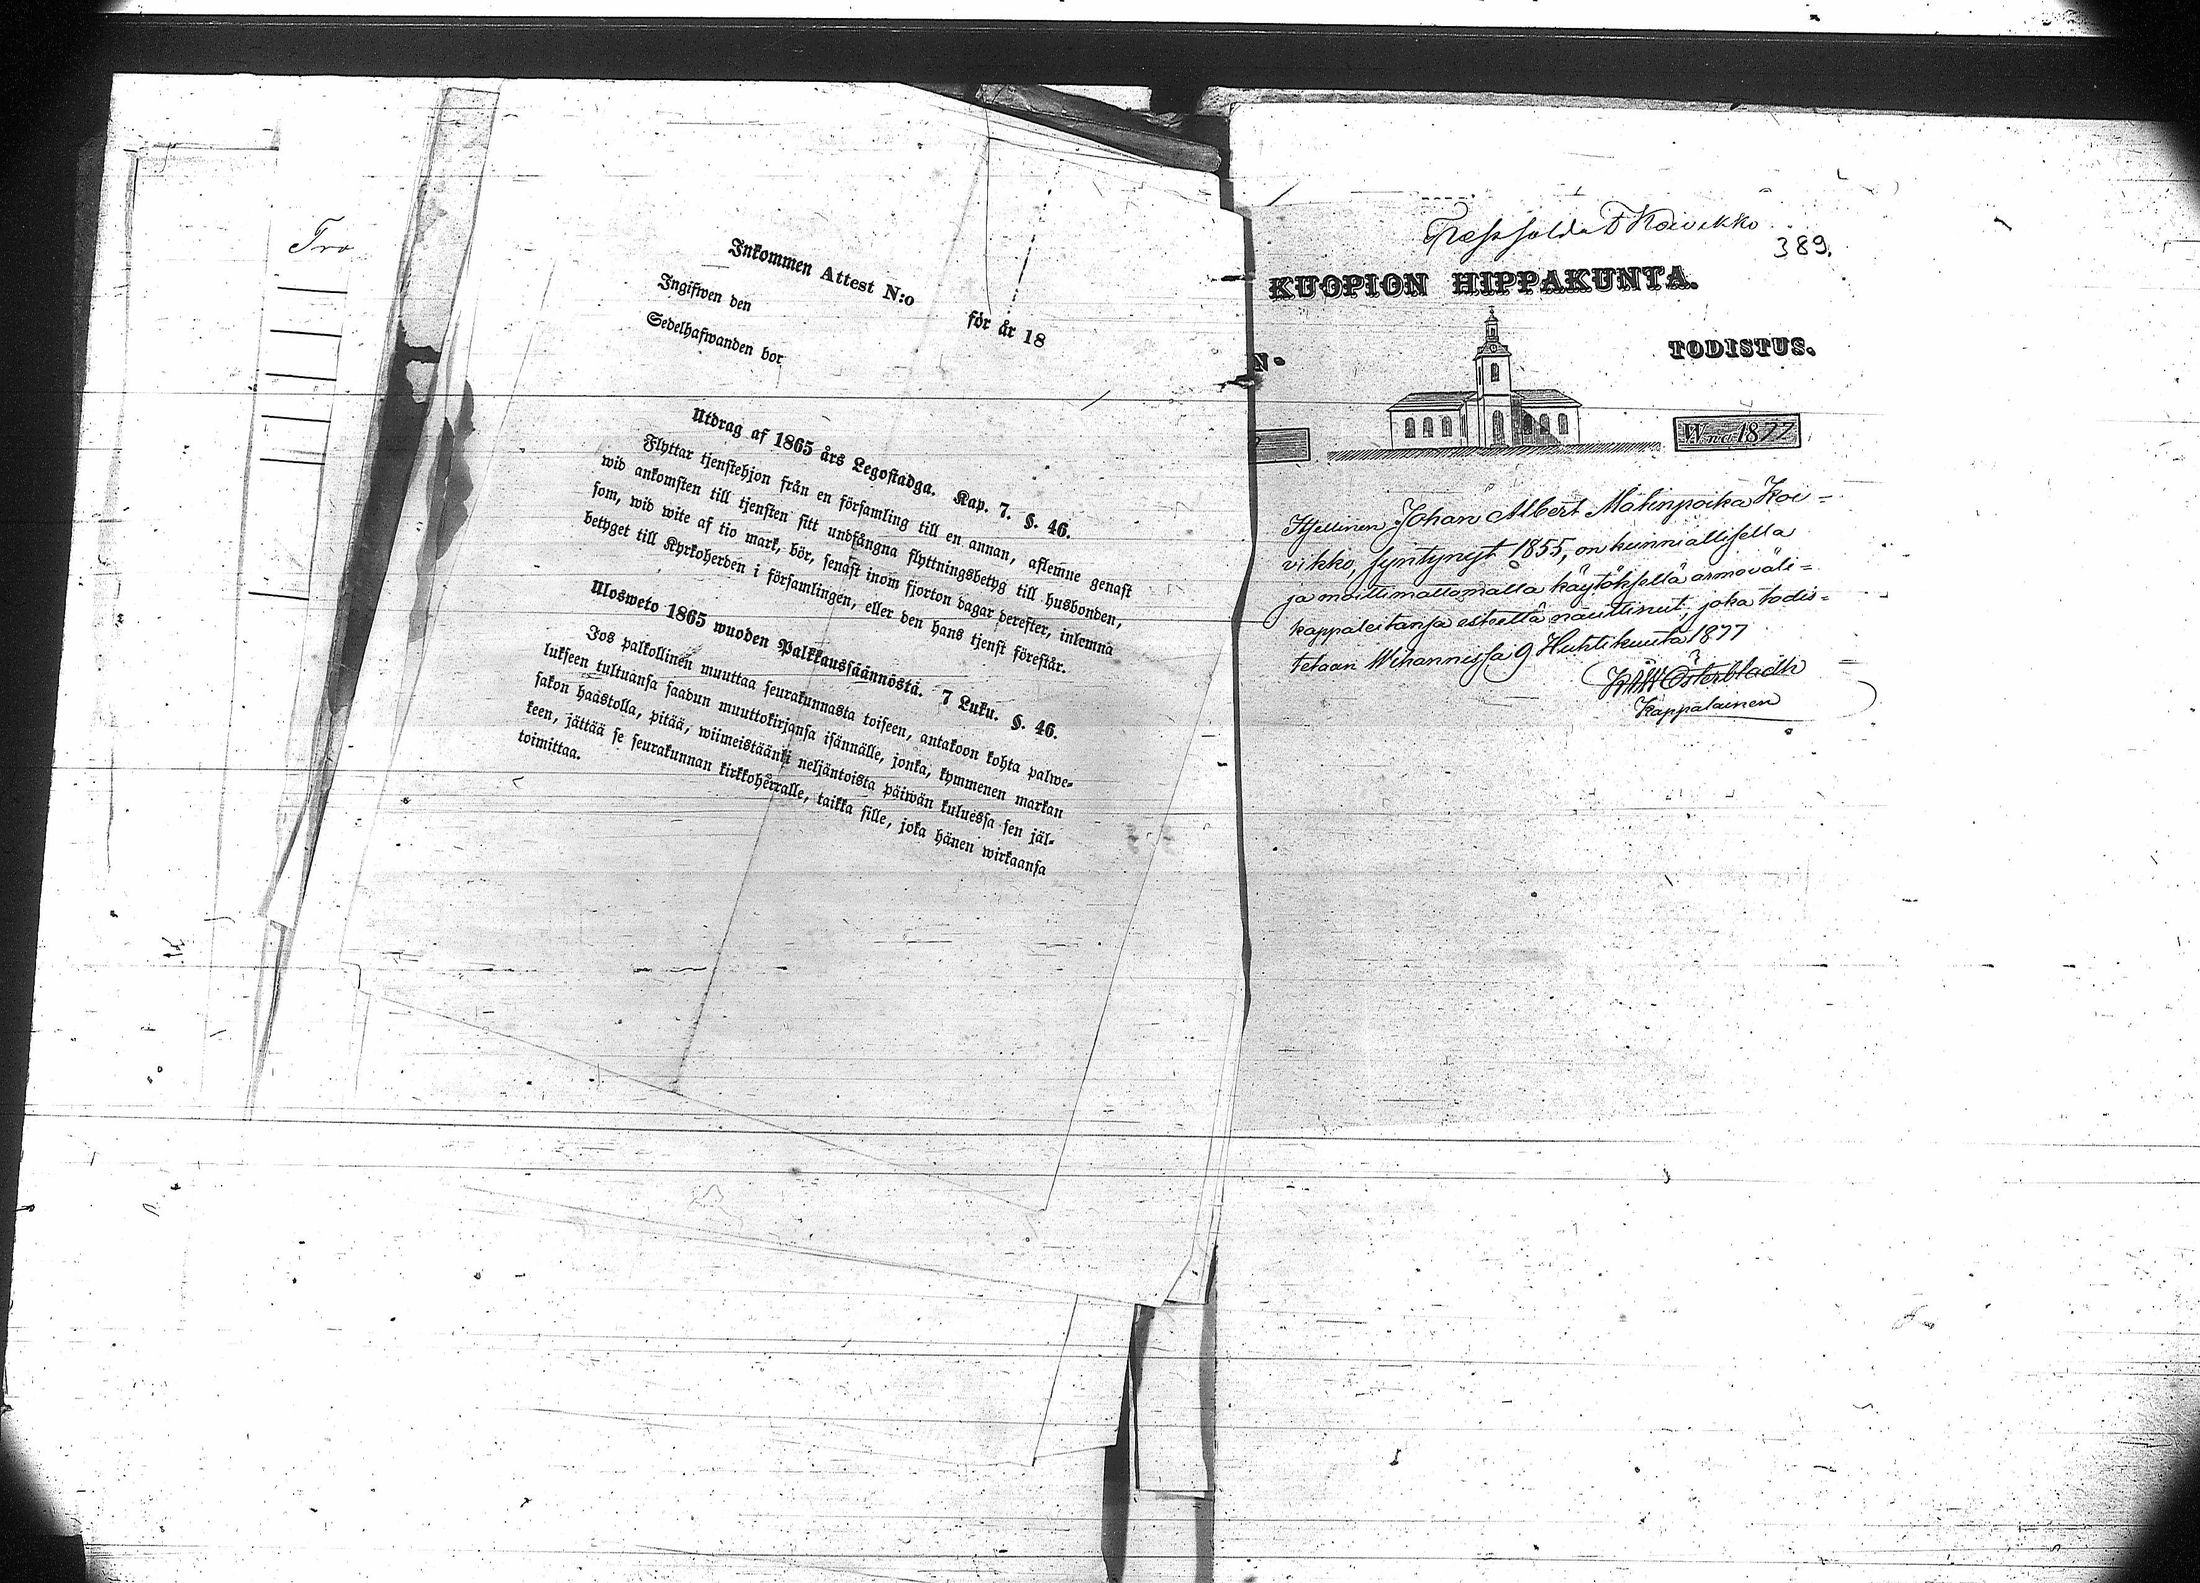 Tro
Inkommen Attest N:o för år 18
Ingifwen den
Sedelhafwanden bor
Utdrag af 1865 års Legostadga. Kap. 7. §. 46.
Flyttar tjenstehjon från en församling till en annan, aflemne genast
wid ankomsten till tjensten sitt undfångna flyttningsbetyg till husbonden,
som, wid wite af tio mark, bör, senast inom fjorton dagar derefter, inlemna
betyget till Kyrkoherden i församlingen, eller den hans tjenst förestår.
Ulosweto 1865 wuoden Palkkaussäännöstä. 7 Luku. §. 46.
Jos palkollinen muuttaa seurakunnasta toiseen, antakoon kohta palwe-
lukseen tultuansa saadun muuttokirjansa isännälle, jonka, kymmenen markan
sakon haastolla, pitää, wiimeistäänki neljäntoista päiwän kuluessa sen jäl-
keen, jättää se seurakunnan kirkkoherralle, taikka sille, joka hänen wirkaansa
toimittaa.
Koivikko
389.
KUOPION HIPPAKUNTA.
N.
TODISTUS.
Wna 1877
Itsellinen Johan Albert Matinpoika Koi-
vikko, syntynyt 1855, on kunniallisella
ja moittimattomalla käytöksellä armoväli-
kappaleitansa esteettä nauttinut, joka todis-
tetaan Wihannissa 9 Huhtikuuta 1877
Österbladh
Kappalainen